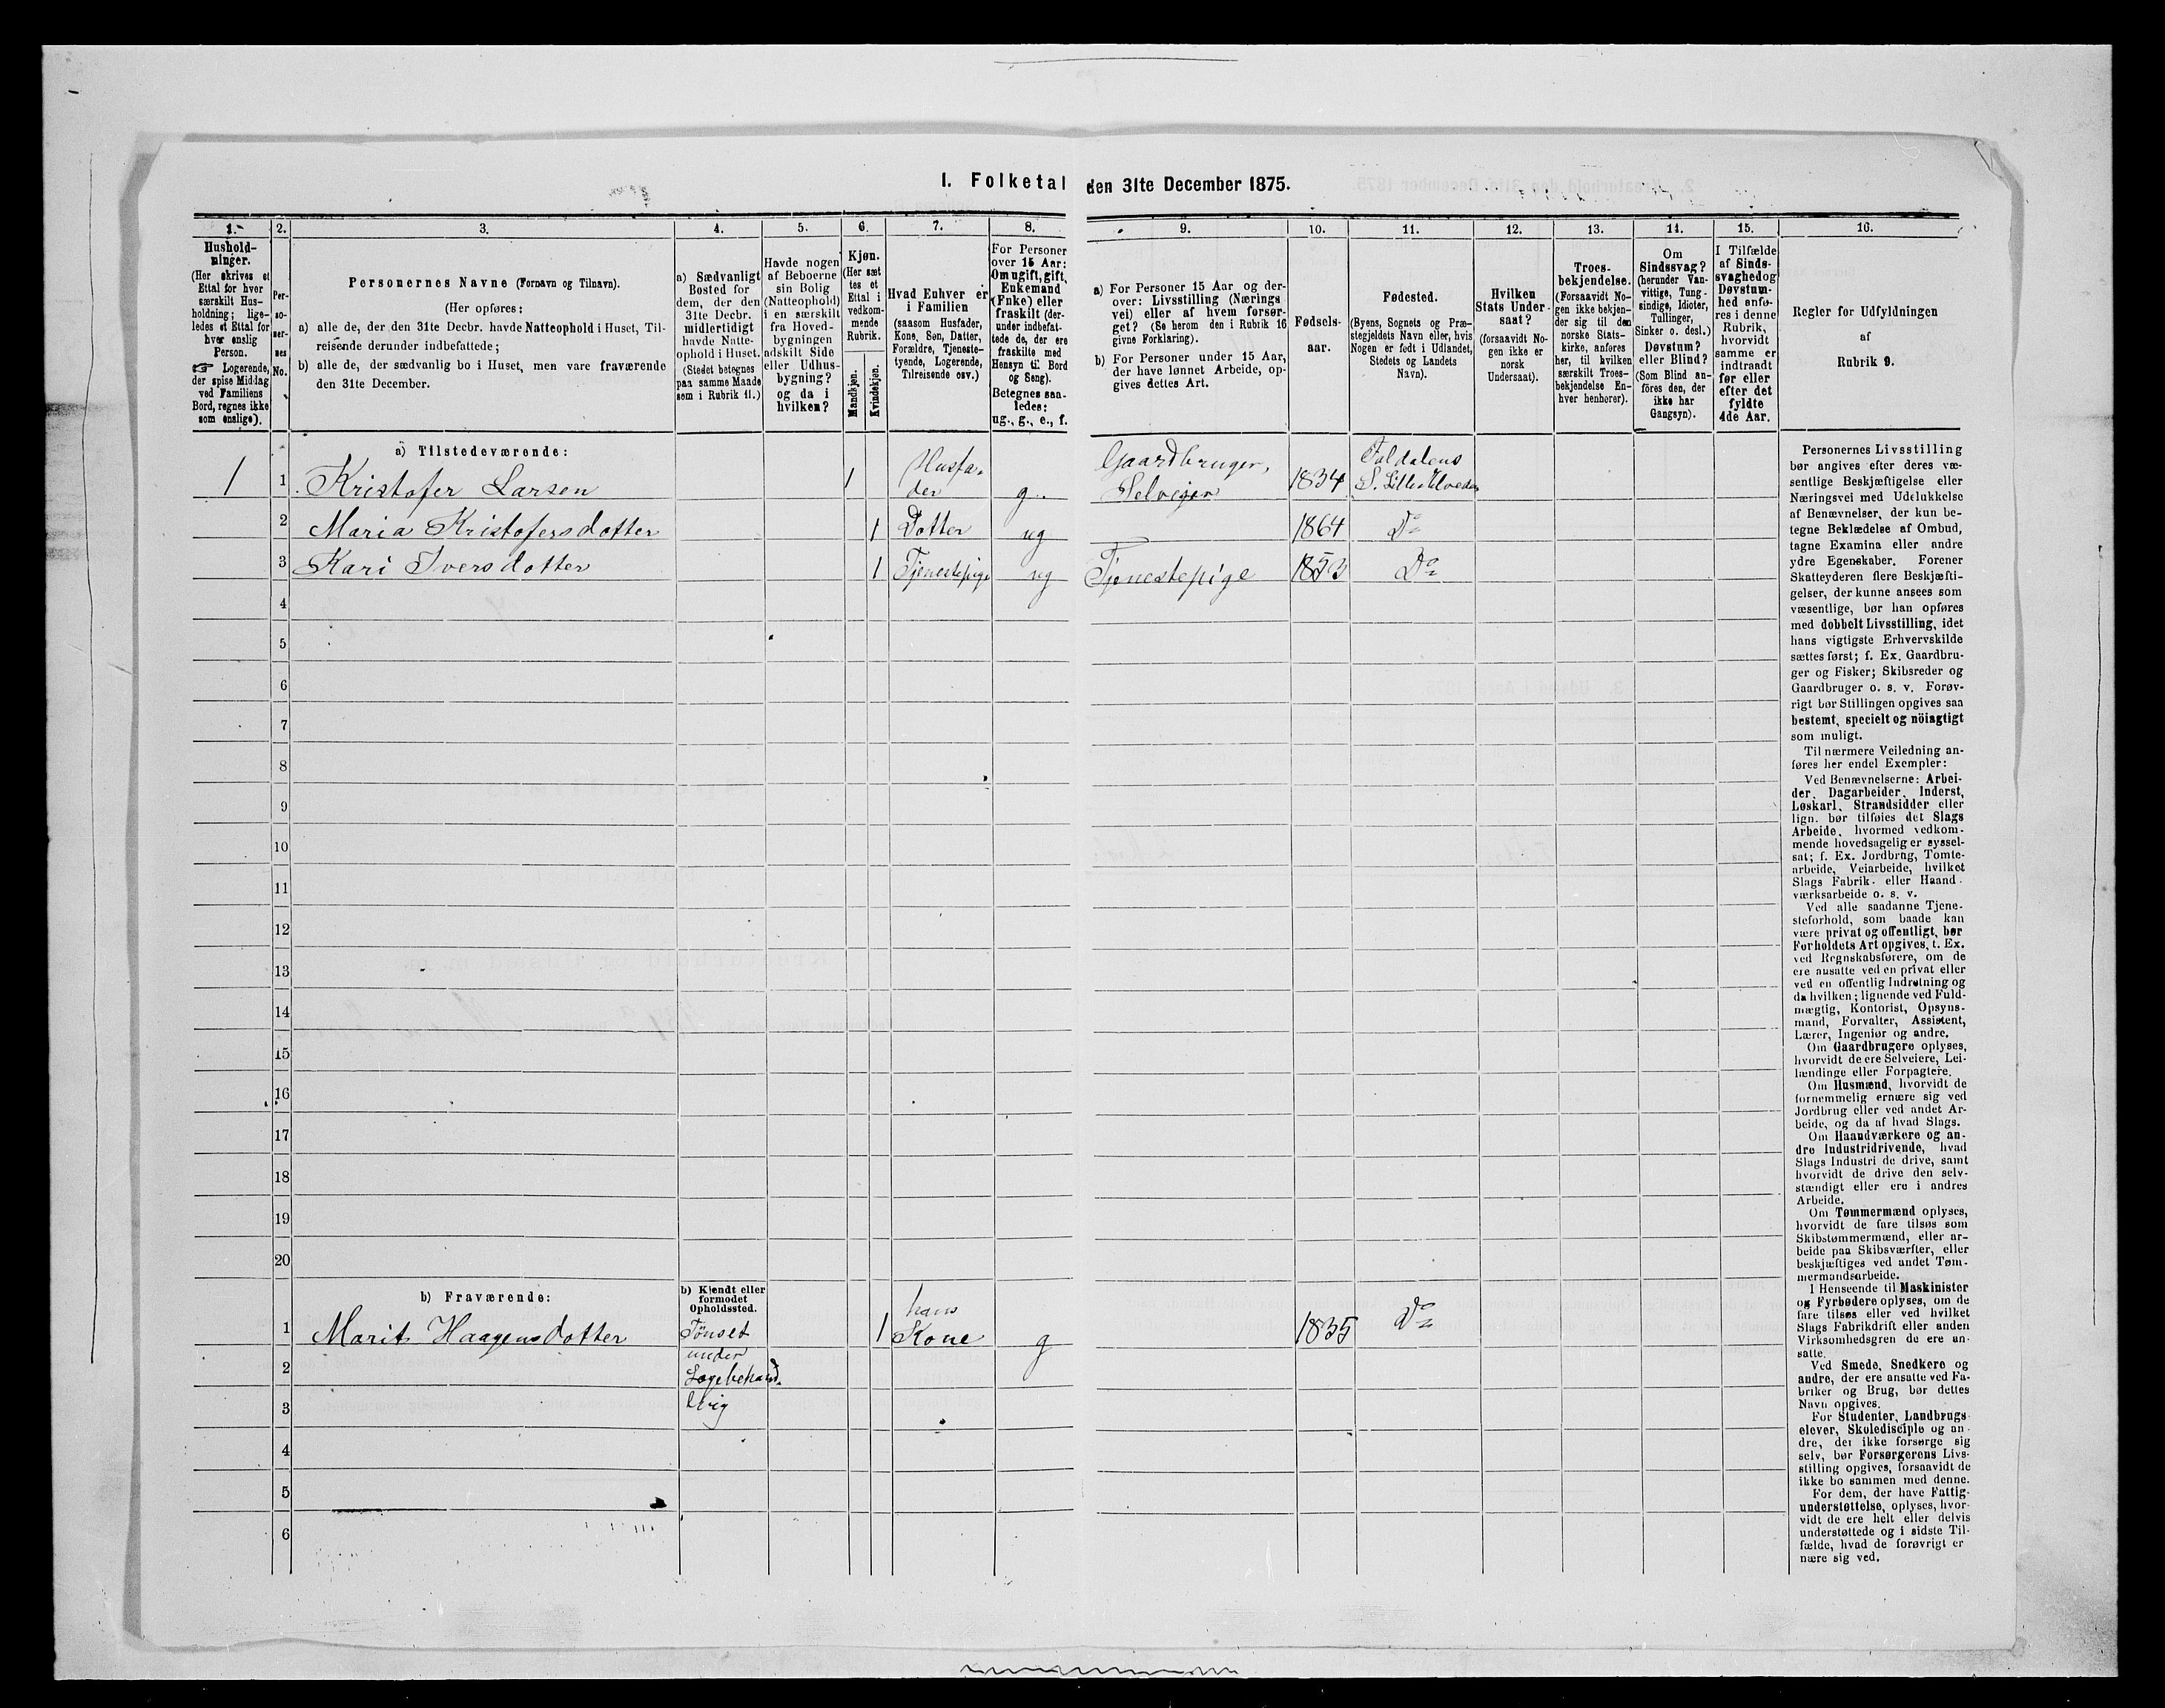 I. Folketal den 31te December 1875.
1. 2. 3. 4. 5. 6. 7. 8. 9. 10. 11. 12. 13. 14. 15. 16.
Hushold-
ninger.
(Her skrives et
Ettal for hver
særskilt Hus-
holdning; lige-
ledes et Ettal for
hver enslig
Person.
☞ Logerende,
der spise Middag
ved Familiens
Bord, regnes ikke
som enslige).
Per-
so-
ner-
nes
No.
Personernes Navne (Fornavn og Tilnavn).
(Her opføres:
a) alle de, der den 31te Decbr. havde Natteophold i Huset, Til-
reisende derunder indbefattede;
b) alle de, der sædvanlig bo i Huset, men vare fraværende
den 31te December.
a) Sædvanligt
Bosted for
dem, der den
31te Decbr.
midlertidigt
havde Natte-
ophold i Huset.
(Stedet betegnes
paa samme Maade
som i Rubrik 11.)
Havde nogen
af Beboerne
sin Bolig
(Natteophold)
i en særskilt
fra Hoved-
bygningen
adskilt Side
eller Udhus-
bygning?
og da i
hvilken?
Kjøn.
(Her sæt
tes et
Ettal i
vedkom-
mende
Rubrik.
Mandkjøn.
Kvindekjøn.
Hvad Enhver er
i Familien
(saasom Husfader,
Kone, Søn, Datter,
Forældre, Tjeneste-
tyende, Logerende,
Tilreisende osv.)
For Personer
over 15 Aar:
Om ugift, gift,
Enkemand
(Enke) eller
fraskilt (der-
under indbefat-
tede de, der ere
fraskilte med
Hensyn til Bord
og Seng).
Betegnes saa-
ledes:
ug., g., e., f.
a) For Personer 15 Aar og der-
over: Livsstilling (Nærings
vei) eller af hvem forsør-
get? (Se herom den i Rubrik 16
givne Forklaring).
b) For Personer under 15 Aar,
der have lønnet Arbeide, op-
gives dettes Art.
Fødsels-
aar.
Fødested.
(Byens, Sognets og Præ-
stegjeldets Navn eller, hvis
Nogen er født i Udlandet,
Stedets og Landets
Navn).
Hvilken
Stats Under-
saat?
(forsaavidt No-
gen ikke er
norsk
Undersaat).
Troes-
bekjendelse.
(Forsaavidt No-
gen ikke bekjen-
der sig til den
norske Stats-
kirke, anføres
her, til hvilken
særskilt Troes-
bekjendelse En-
hver henhører).
Om
Sindssvag?
(herunder Van-
vittige, Tung-
sindige, Idioter,
Tullinger,
Sinker o. desl.)
Døvstum?
eller Blind?
(Som Blind an-
föres den, der
ikke har
Gangsyn).
I Tilfælde
af Sinds-
svaghed og
Døvstum-
hed anfø-
res i denne
Rubrik,
hvorvidt
samme er
indtraadt
før eller
efter det
fyldte
4de Aar.
Regler for Udfyldningen
af
Rubrik 9.
a) Tilstedeværende:
1 1 Kristofer Larsen 1 Husfa-
der g. Gaardbruger,
Selvejer 1834 Foldalens
S. Lille Elvedal
2 Maria Kristofersdotter 1 Dotter ug 1864 Do
3 Kari Iversdotter 1 Tjenestepige ug Tjenestepige 1853 Do
4
5
6
7
8
9
10
11
12
13
14
15
16
17
18
19
20
b) Fraværende:
b) Kjendt eller
formodet
Opholdssted.
1 Marit Haagensdotter Tönset
under
Lægebehand-
ling 1 hans
Kone g 1835 Do
2
3
4
5
6
Personernes Livsstilling
bør angives efter deres væ-
sentlige Beskjæftigelse eller
Næringsvei med Udelukkelse
af Benævnelser, der kun be-
tegne Beklædelse af Ombud,
tagne Examina eller andre
ydre Egenskaber. Forener
Skatteyderen flere Beskjæfti-
gelser, der kunne ansees som
væsentlige, bør han opføres
med dobbelt Livsstilling, idet
hans vigtigste Erhvervskilde
sættes først; f. Ex. Gaardbru-
ger og Fisker; Skibsreder og
Gaardbruger o. s. v. Forøv-
rigt bør Stillingen opgives saa
bestemt, specielt og nöiagtigt
som muligt.
Til nærmere Veiledning an-
føres her endel Exempler:
Ved Benævnelserne: Arbei-
der, Dagarbeider, Inderst,
Løskarl, Strandsidder eller
lign. bør tilføies det Slags
Arbeide, hvormed vedkom-
mende hovedsagelig er syssel-
sat; f. Ex. Jordbrug, Tomte-
arbeide, Veiarbeide, hvilket
Slags Fabrik- eller Haand-
værksarbeide o. s. v.
Ved alle saadanne Tjene-
steforhold, som baade kan
være privat og offentligt, bør
Forholdets Art opgives, t. Ex.
ved Regnskabsførere, om de
ere ansatte ved en privat eller
ved en offentlig Indretning og
da hvilken; lignende ved Fuld-
mægtig, Kontorist, Opsyns-
mand, Forvalter, Assistent,
Lærer, Ingeniør og andre.
Om Gaardbrugere oplyses,
hvorvidt de ere Selveiere, Lei-
lændinge eller Forpagtere.
Om Husmænd, hvorvidt de
fornemmelig ernære sig ved
Jordbrug eller ved andet Ar-
beide, og da af hvad Slags.
Om Haandværkere og an-
dre Industridrivende, hvad
Slags Industri de drive, samt
hvorvidt de drive den selv-
stændigt eller ere i andres
Arbeide.
Om Tømmermænd oplyses,
hvorvidt de fare tilsøs som
Skibstømmermænd, eller ar-
beide paa Skibsværfter, eller
beskjæftiges ved andet Tøm-
mermandsarbeide.
I Henseende til Maskinister
og Fyrbødere oplyses, om de
fare tilsøs eller ved hvilket
Slags Fabrikdrift eller anden
Virksomhedsgren de ere an-
satte.
Ved Smede, Snedkere og
andre, der ere ansatte ved Fa-
briker og Brug, bør dettes
Navn opgives.
For Studenter, Landbrugs-
elever, Skoledisciple og an-
dre, der ikke forsørge sig
selv, bør Forsørgerens Livs-
stilling opgives, forsaavidt de
ikke bo sammen med denne.
For dem, der have Fattig-
understøttelse, oplyses, hvor-
vidt de ere helt eller delvis
understøttede og i sidste Til-
fælde, hvad de forøvrigt er
nære sig ved.